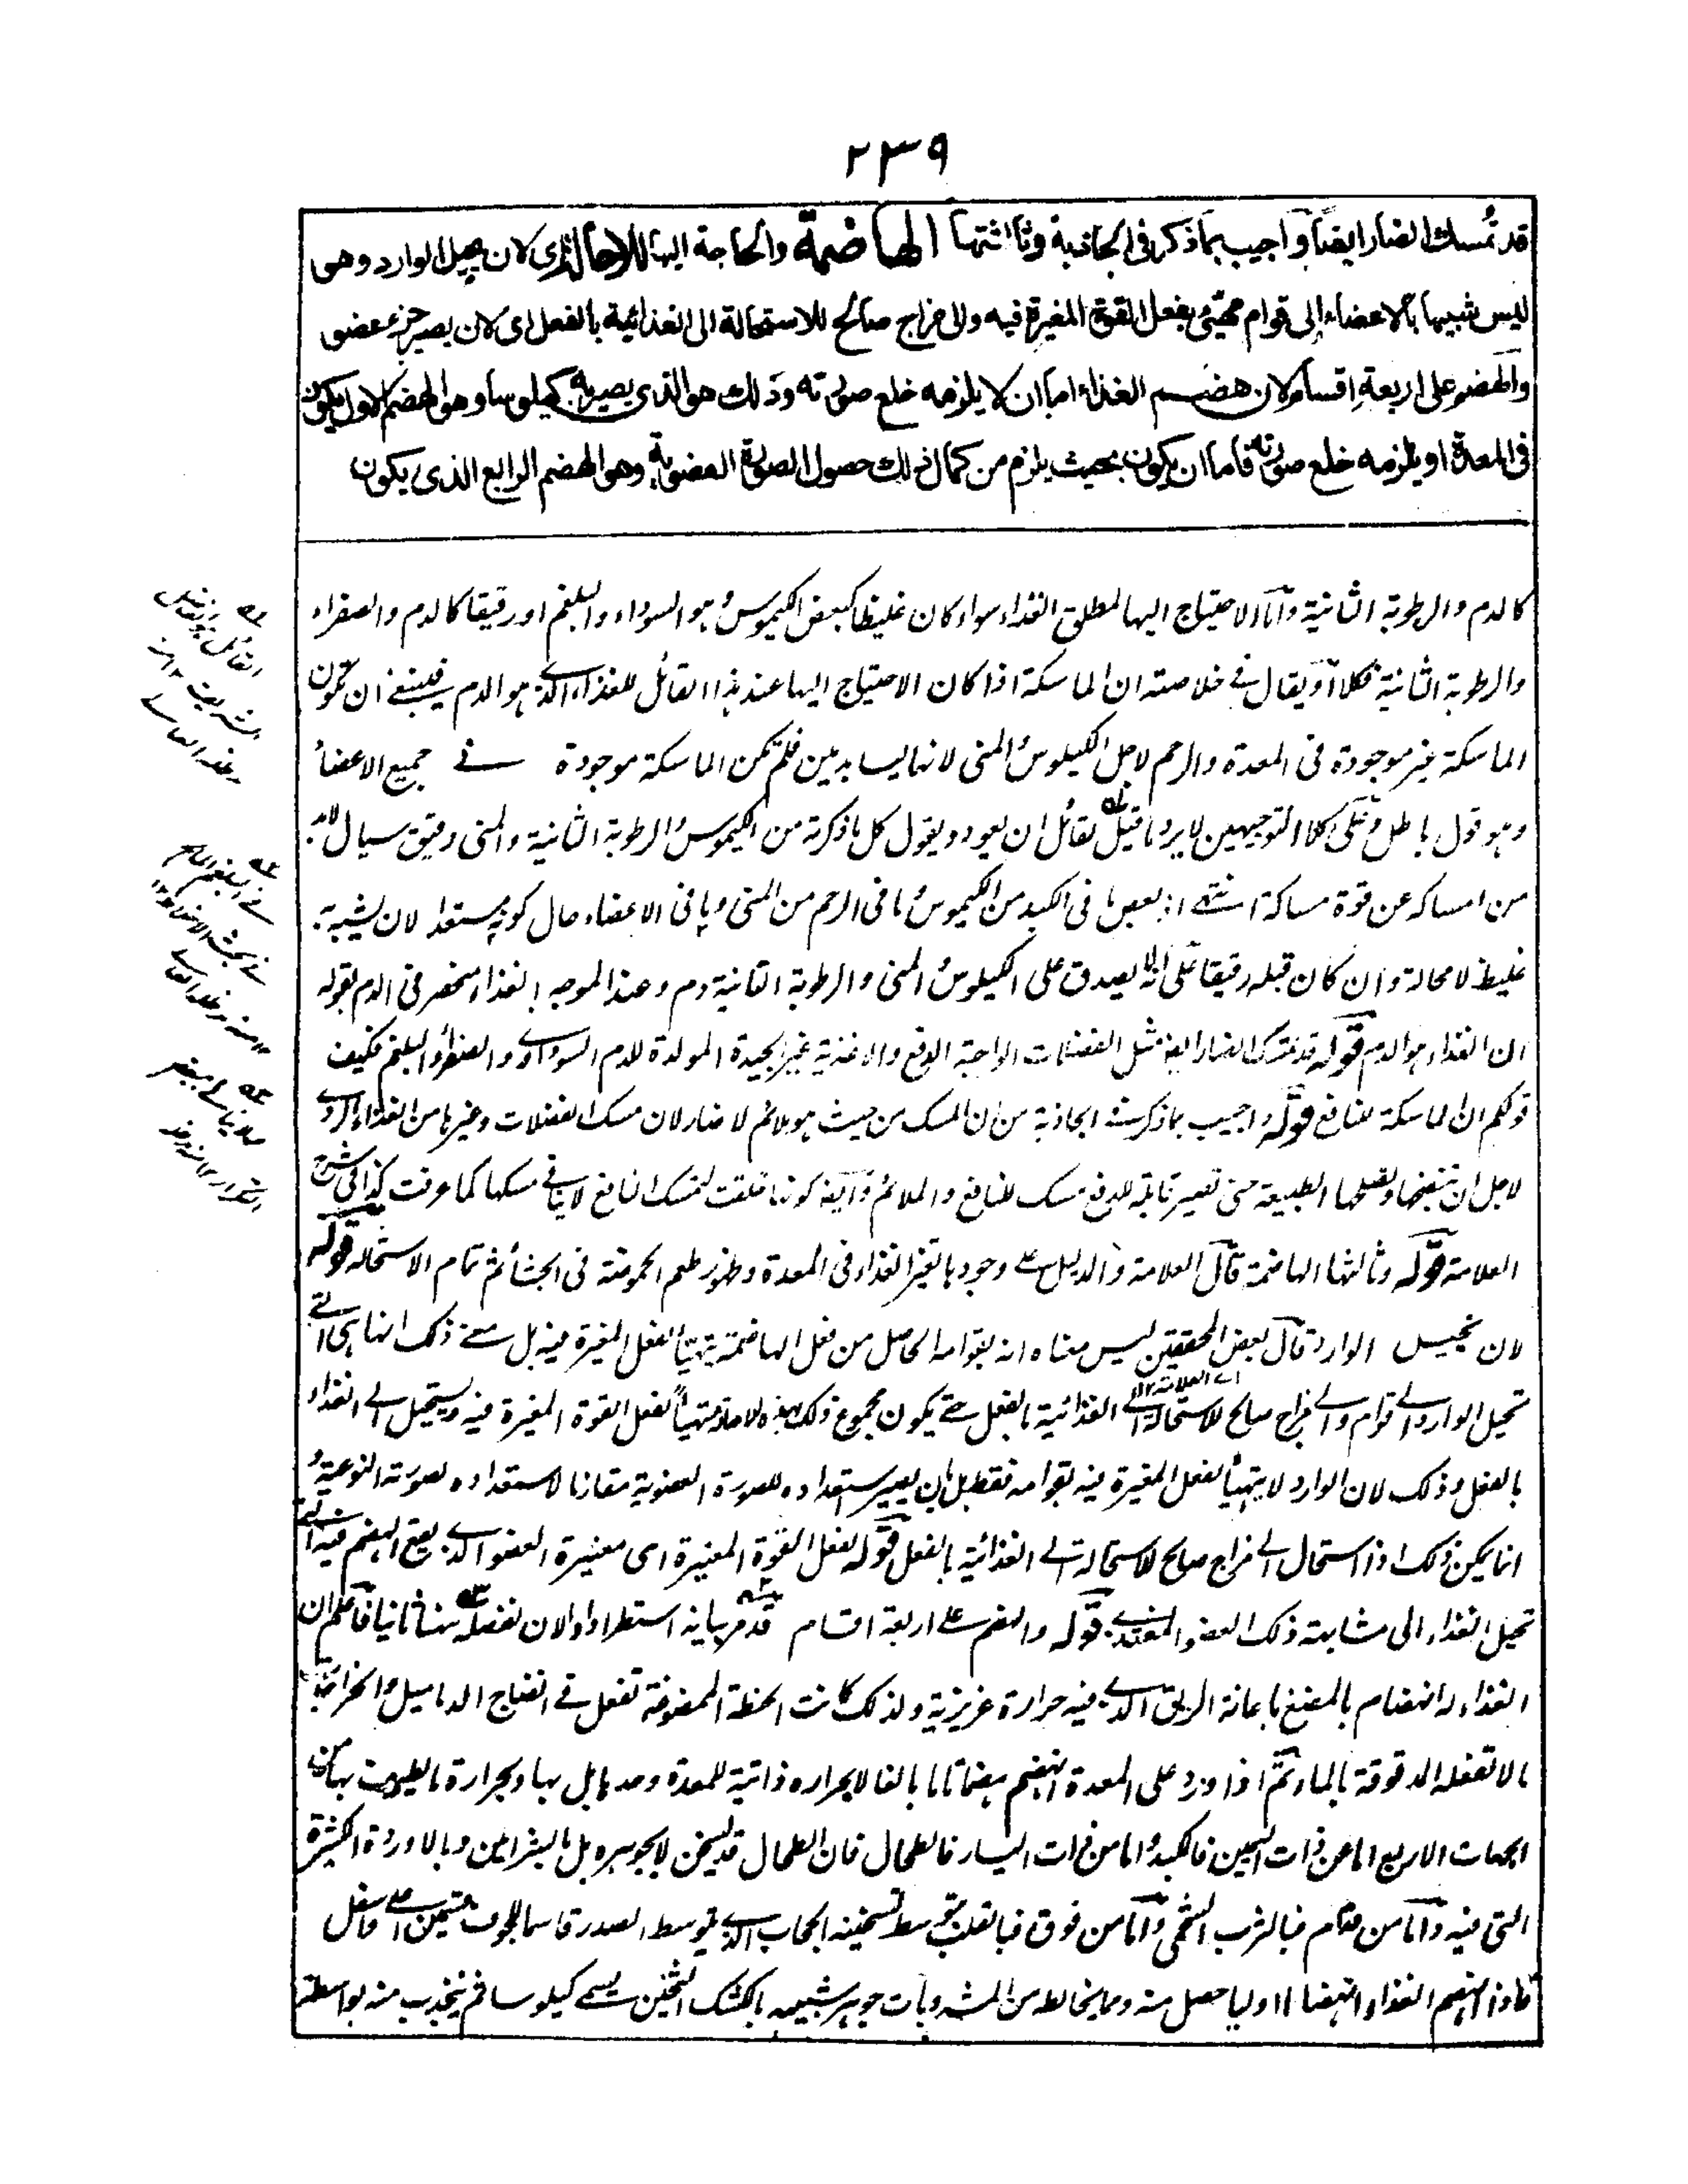 ٢٣٩
قد تمسك الضار ايضا واجيب بما ذكر فى الجاذبة وثالثتها الهاضمة والحاجة اليها للاحالة اى لان يحيل الوارد وهى
ليس شبيها بالاعضاء الى قوام مهيئ بفعل القوة المغيرة فيه والى مزاج صالح للاستحالة الى الغذائية بالفعل اى لان يصير جزء عضو
والهضم على اربعة اقسام لان هضم الغذاء اما ان لا يلزمه خلع صورته وذلك هو الذى يصير به كيلوسا وهو الهضم الاول يكون
فى المعدة او يلزمه خلع صورته فاما ان يكون بحيث يلزم من كمال ذلك حصول الصورة العضوية وهو الهضم الرابع الذى يكون
كالدم والرطوبة الثانية واما الاحتياج اليها لمطلق الغذاء سواء كان غليظا كبعض الكيموس وهو السوداء والبلغم او رقيقا كالدم والصفراء
والرطوبة الثانية فكلا او يقال فى خلاصته ان الماسكة اذا كان الاحتياج اليها عند هذا القائل للغذاء الذى هو الدم فينبغى ان تكون
الماسكة غير موجودة فى المعدة والرحم لاجل الكيلوس والمنى لانهما ليسا بدمين فلم تكن الماسكة موجودة فى جميع الاعضاء
وهو قول باطل وعلى كلا التوجيهين لا يرد ما قيل لقائل ان يعود ويقول كل ما ذكرته من الكيموس والرطوبة الثانية والمنى رقيق سيال لا بد
من امساكه عن قوة ماسكة انتهى اذ بعض ما فى الكبد من الكيموس وما فى الرحم من المنى وما فى الاعضاء حال كونه مستعدا لان يشبه به
غليظ لا محالة وان كان قبله رقيقا على انه لا يصدق على الكيلوس والمنى والرطوبة الثانية دم وعند الموجه الغذاء منحصر فى الدم بقوله
ان الغذاء هو الدم قوله قد تمسك الضار ايضا مثل الفضلات الواجبة الدفع والاغذية غير الجيدة المولدة للدم السوداوى والصفراء والبلغم فكيف
قولكم ان الماسكة للنافع قوله واجيب بما ذكر فى الجاذبة من ان المسك من حيث هو ملائم لا ضار لان مسك الفضلات وغيرها من الغذاء الردى
لاجل ان تنضجها وتصلحها الطبيعة حتى تصير قابلة للدفع مسك للنافع والملائم وايضا كونها خلقت لتمسك النافع لا ينافى مسكها كما عرفت كذا فى شرح
العلامة قوله وثالثتها الهاضمة قال العلامة والدليل على وجودها تغير الغذاء فى المعدة وظهور طعم الحموضة فى الجشاء ثم تمام الاستحالة قوله
لان يحيل الوارد قال بعض المحققين ليس معناه انه بقوامه الحاصل من فعل الهاضمة يتهيأ لفعل المغيرة فيه بل معنى ذلك انها هى التى
تحيل الوارد الى قوام والى مزاج صالح للاستحالة الى الغذائية بالفعل حتى يكون مجموع ذلك بهذه الاحالة متهيأ لفعل القوة المغيرة فيه ويستحيل الى الغذاء
بالفعل وذلك لان الوارد لا يتهيأ لفعل المغيرة فيه بقوامه فقط بل بان يصير استعداده للصورة العضوية مقارنا لاستعداده لصورته النوعية و
انما يمكن ذلك اذا استحال الى مزاج صالح للاستحالة الى الغذائية بالفعل قوله لفعل القوة المغيرة اى مغيرة العضو الذى يقع الهضم فيه التى
تحيل الغذاء الى مشابهة ذلك العضو المغتذى قوله والهضم على اربعة اقسام قد مر بيانه استطرادا والان نفصله ههنا ثانيا فاعلم ان
الغذاء له انهضام بالمضغ باعانة الريق الذى فيه حرارة غريزية ولذلك كانت الحنطة الممضوغة تفعل فى انضاج الدماميل والخراجات
ما لا تفعله المدقوقة بالماء ثم اذا ورد على المعدة انهضم هضما تاما بالغا لا بحرارة ذاتية للمعدة وحدها بل بها وبحرارة ما يطيف بها من
الجهات الاربع اما من ذات اليمين فالكبد واما من ذات اليسار فالطحال فان الطحال قد يسخن لا بجوهره بل بالشرايين وبالاوردة الكثيرة
التى فيه واما من قدام فبالثرب الشحمى واما من فوق فبالقلب بتوسط تسخينه الحجاب الذى يتوسط الصدر قاسما للجوف قسمين اعلى واسفل
فاذا انهضم الغذاء انهضاما اوليا حصل منه ومما يخالطه من المشروبات جوهر شبيه بالكشك الثخين يسمى كيلوسا ثم ينجذب منه بواسطة